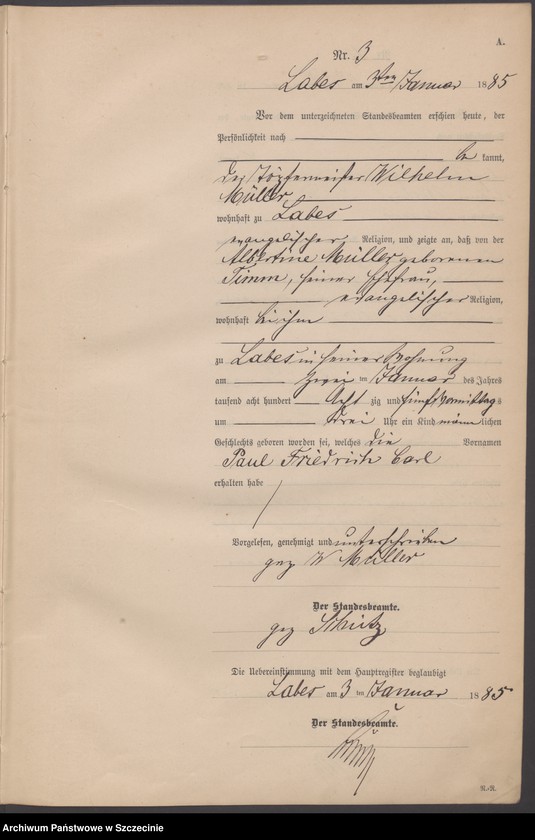 A.
Nr. 3
Labes am 3ten Januar 1885
Vor dem unterzeichneten Standesbeamten erschien heute, der
Persönlichkeit nach
be kannt,
der Töpfermeister Wilhelm
Müller
wohnhaft zu Labes
evangelischer Religion, und zeigte an, daß von der
Albertine Müller geborenen
Timm, seiner Ehefrau,
evangelischer Religion,
wohnhaft bei ihm
zu Labes in seiner Wohnung
am zwei ten Januar des Jahres
tausend acht hundert Acht zig und fünf Vormittags
um drei Uhr ein Kind männlichen
Geschlechts geboren worden sei, welches die Vornamen
Paul Friedrich Carl
erhalten habe
Vorgelesen, genehmigt und unterschrieben
gez W Müller
Der Standesbeamte.
gez Schütz
Die Uebereinstimmung mit dem Hauptregister beglaubigt
Labes am 3 ten Januar 1885
Der Standesbeamte.
Schütz
R.-R.
Archiwum Państwowe w Szczecinie